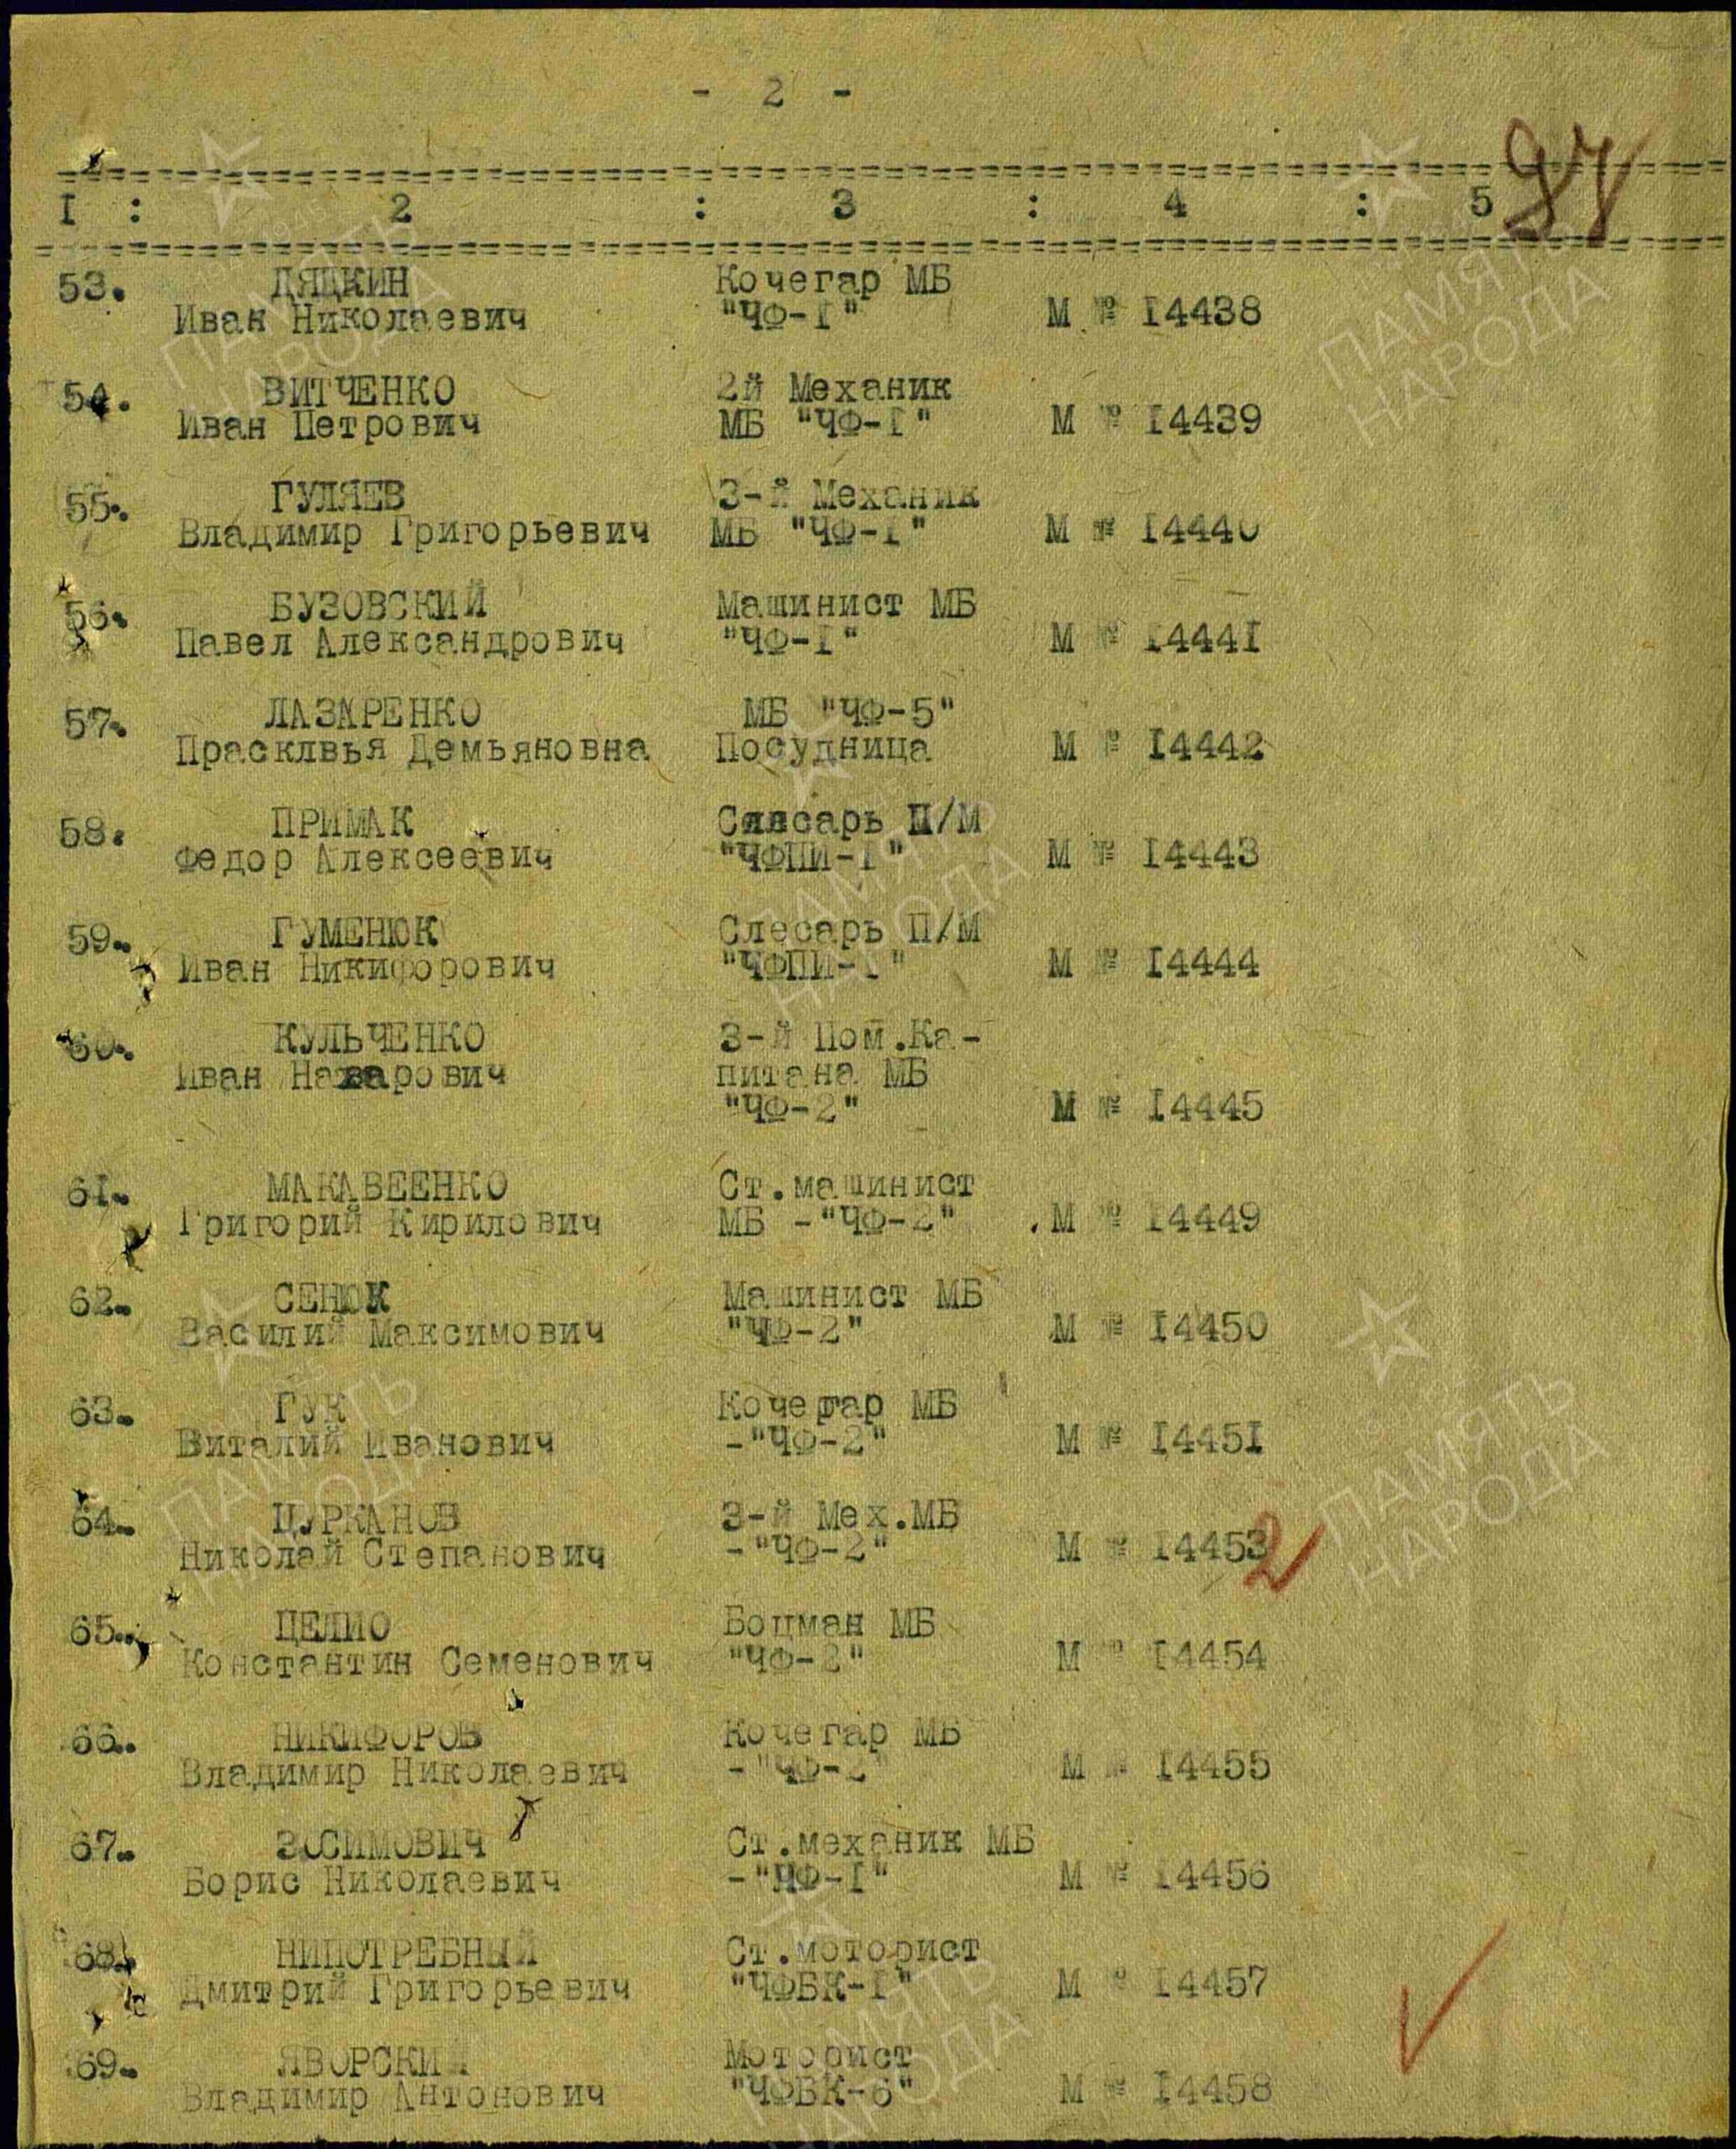 - 2 -
I : 2 : 3 : 4 : 5
53. ДЯДКИН Кочегар МБ
Иван Николаевич "ЧФ-I" М № I4438
54. ВИТЧЕНКО 2й Механик
Иван Петрович МБ "ЧФ-I" М № I4439
55. ГУЛЯЕВ 3-й Механик
Владимир Григорьевич МБ "ЧФ-I" М № I4440
56. БУЗОВСКИЙ Машинист МБ
Павел Александрович "ЧФ-I" М № I444I
57. ЛАЗАРЕНКО МБ "ЧФ-5"
Прасклвья Демьяновна Посудница М № I4442
58. ПРИМАК Слесарь П/М
Федор Алексеевич "ЧФПИ-I" М № I4443
59. ГУМЕНЮК Слесарь П/М
Иван Никифорович "ЧФПИ-I" М № I4444
60. КУЛЬЧЕНКО 3-й Пом.Ка-
Иван Назарович питана МБ
"ЧФ-2" М № I4445
61. МАКАВЕЕНКО Ст.машинист
Григорий Кирилович МБ -"ЧФ-2" М № I4449
62. СЕНЮК Машинист МБ
Василий Максимович "ЧФ-2" М № I4450
63. ГУК Кочегар МБ
Виталий Иванович -"ЧФ-2" М № I445I
64. ЦУРКАНОВ 3-й Мех.МБ
Николай Степанович -"ЧФ-2" М № I4453 2
65. ЦЕЛИО Боцман МБ
Константин Семенович "ЧФ-2" М № I4454
66. НИКИФОРОВ Кочегар МБ
Владимир Николаевич -"ЧФ-2" М № I4455
67. ЗОСИМОВИЧ Ст.механик МБ
Борис Николаевич -"ЧФ-I" М № I4456
68. НИПОТРЕБНЫЙ Ст.моторист
Дмитрий Григорьевич "ЧФБК-I" М № I4457
69. ЯВОРСКИЙ Моторист
Владимир Антонович "ЧФБК-6" М № I4458
ПАМЯТЬ
НАРОДА
ПАМЯТЬ
НАРОДА
ПАМЯТЬ
НАРОДА
ПАМЯТЬ
НАРОДА
ПАМЯТЬ
НАРОДА
ПАМЯТЬ
НАРОДА